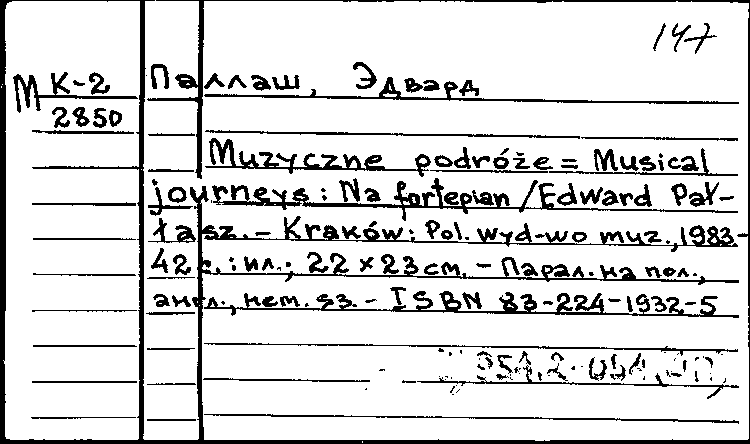 147
М К-2
2850
Паллаш, Эдвард
Muzyczne podróże = Musical
journeys : Na fortepian / Edward Pał-
łasz. - Kraków : Pol. wyd-wo muz., 1983-
42 с. : ил.; 22 x 23 cm. - Парал. на пол.,
англ., нем. яз. - ISBN 83-224-1932-5